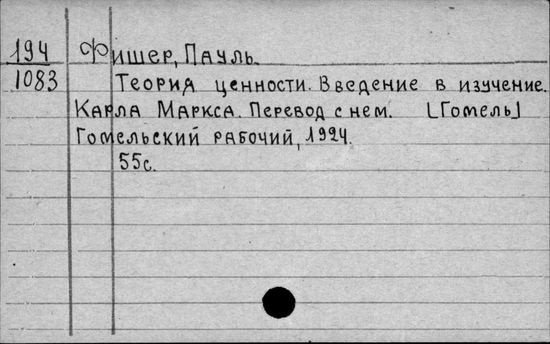 194 Фишер, Пауль.
1083 Теория ценности. Введение в изучение.
Карла Маркса. Перевод с нем. [Гомель]
Гомельский рабочий, 1924.
55с.